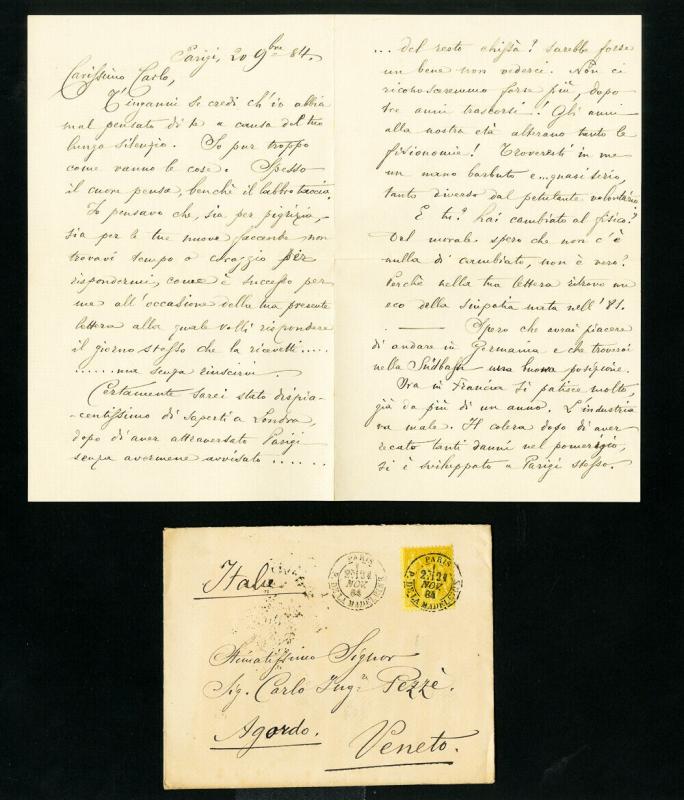 Parigi, 20 9bre 84.
Carissimo Carlo,
T'inganni se credi ch'io abbia
mal pensato di te a causa del tuo
lungo silenzio. So pur troppo
come vanno le cose. Spesso
il cuore pensa, benchè il labbro taccia.
Io pensavo che, sia per pigrizia,
sia per le tue nuove faccende non
trovavi tempo o coraggio per
rispondermi, come è successo per
me all'occasione della tua presente
lettera alla quale volli rispondere
il giorno stesso che la ricevetti.....
......ma senza riuscirvi.
Certamente sarei stato dispia-
-centissimo di saperti a Londra,
dopo di aver attraversato Parigi
senza avermene avvisato.......
... del resto chissà? sarebbe forse
un bene non vederci. Non ci
riconosceremmo forse più, dopo
tre anni trascorsi! Gli anni
alla nostra età alterano tanto le
fisionomie! Troveresti in me
un uomo barbuto e...quasi serio,
tanto diverso dal petulante volontario.
E tu? hai cambiato al fisico?
Del morale spero che non c'è
nulla di cambiato, non è vero?
Perchè nella tua lettera ritrovo un
eco della simpatia nata nell'81.
Spero che avrai piacere
di andare in Germania e che troverai
nella Südbahn una buona posizione.
Ora in Francia si patisce molto,
già da più di un anno. L'industria
va male. Il colera dopo di aver
recato tanti danni nel pomeriggio,
si è sviluppato a Parigi stesso.
Italie
PARIS
2E 21
NOV
84
P. DE LA MADELEINE
PARIS
2E 21
NOV
84
P. DE LA MADELEINE
Stimatissimo Signor
Sig. Carlo Ingre Pezzè.
Agordo.
Veneto.